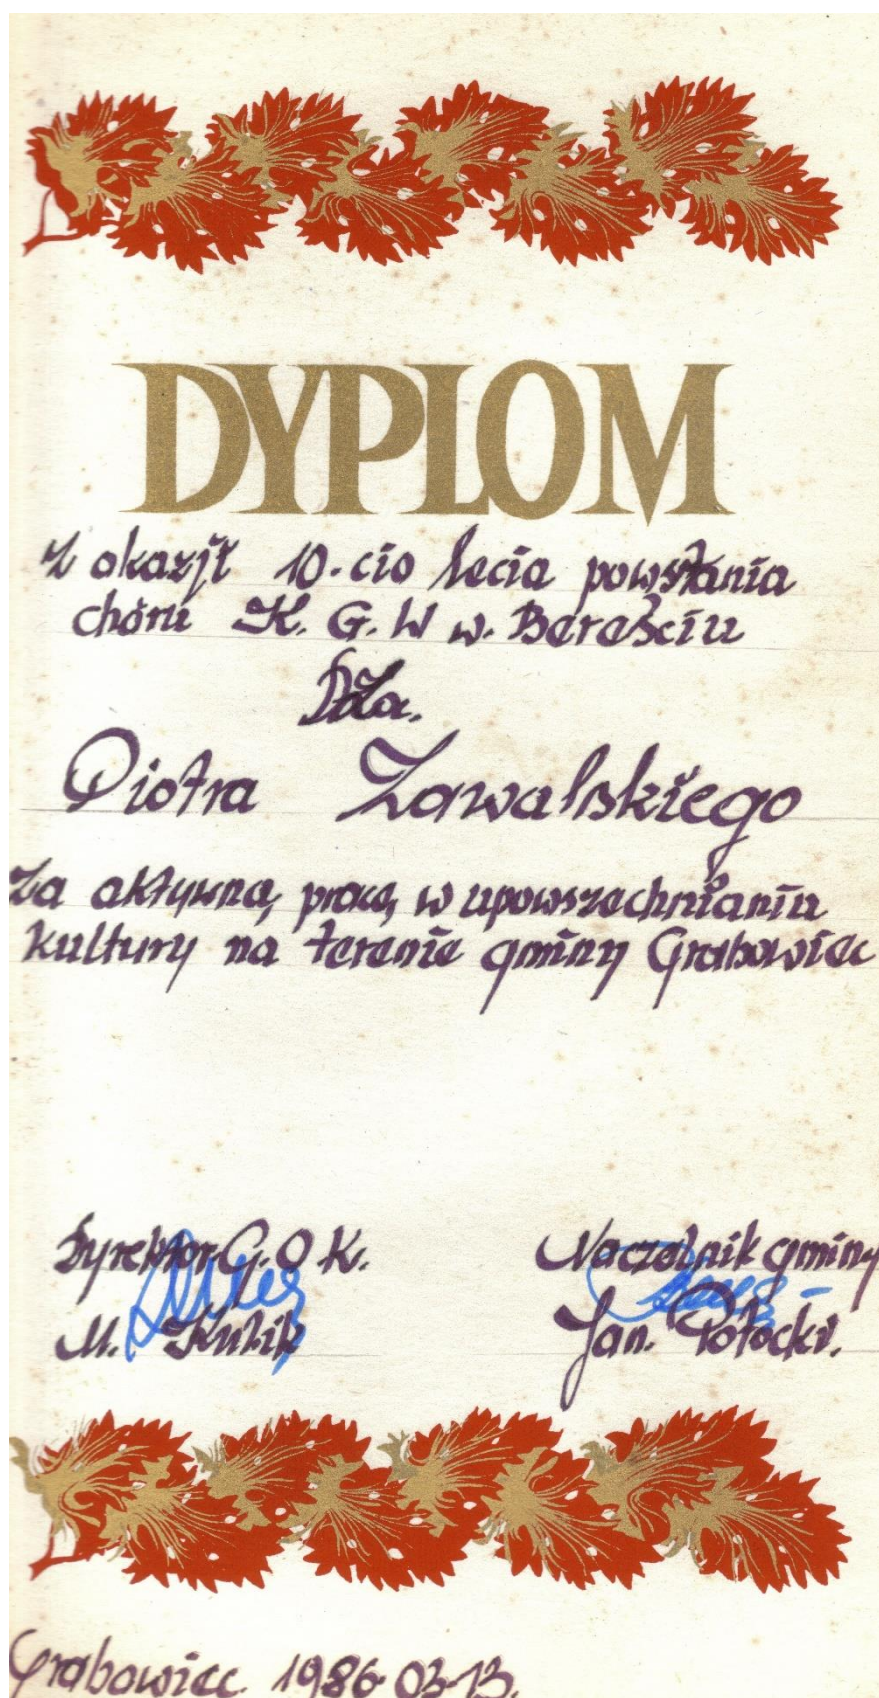 DYPLOM
Z okazji 10-cio lecia powstania
chóru K. G. W w. Bereściu
Dla.
Piotra Zawalskiego
Za aktywną pracę w upowszechnianiu
kultury na terenie gminy Grabowiec
Dyrektor G. O K. Naczelnik gminy
M. Kulik Jan. Potocki.
Grabowiec 1986-03-13.